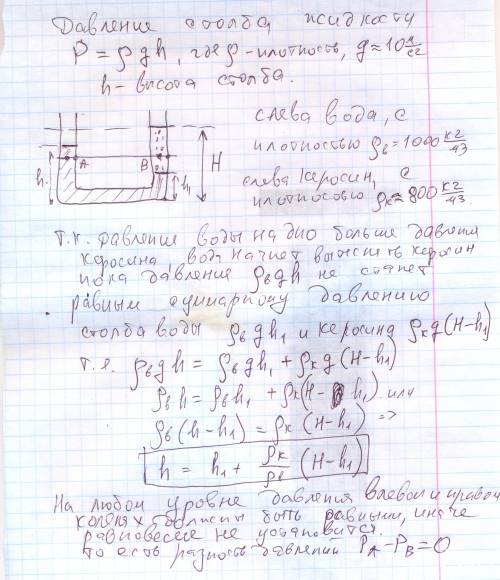 Давление столба жидкости
P = ρgh, где ρ - плотность, g ≈ 10 м/с²
h - высота столба.
слева вода, с
плотностью ρв = 1000 кг/м3
слева керосин, с
плотностью ρк ≈ 800 кг/м3.
A B H
h h₁
Т.к. давление воды на дно больше давления
керосина, вода начнет вытеснять керосин
пока давление ρвgh не станет
равным суммарному давлению
столба воды ρвgh₁ и керосина ρкg(H-h₁)
т.е. ρвgh = ρвgh₁ + ρкg(H-h₁)
ρвh = ρвh₁ + ρк(H- h₁) или
ρв(h-h₁) = ρк(H-h₁) =>
h = h₁ + ρк/ρв (H-h₁)
На любом уровне давления в левом и правом
коленях должны быть равными, иначе
равновесие не установится.
то есть разность давлений PA - PB = 0